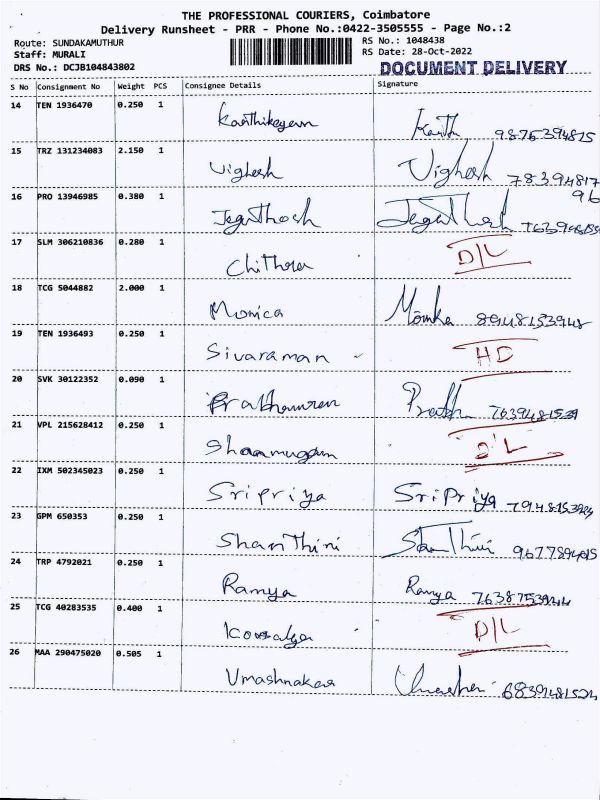 THE PROFESSIONAL COURIERS, Coimbatore
Delivery Runsheet - PRR - Phone No.:0422-3505555 - Page No.:2
Route: SUNDAKAMUTHUR RS No.: 1048438
Staff: MURALI RS Date: 28-Oct-2022
DRS No.: DCJB104843802 DOCUMENT DELIVERY
S No Consignment No Weight PCS Consignee Details Signature
14 TEN 1936470 0.250 1 Karthikeyan Karth 9875394815
15 TRZ 131234083 2.150 1 Vighesh Vighesh 78394817
96
16 PRO 13946985 0.380 1 Jegathosh
17 SLM 306210836 0.280 1 Chithra D/L
18 TCG 5044882 2.000 1 Monica Monika 8948153948
19 TEN 1936493 0.250 1 Sivaraman HD
20 SVK 30122352 0.090 1 Prabhu 7639481539
21 VPL 215628412 0.250 1 Shanmugam D/L
22 IXM 502345023 0.250 1 Sripriya SriPriya
23 GPM 650353 0.250 1 Shanthini
24 TRP 4792021 0.250 1 Ramya Ramya
25 TCG 40283535 0.400 1 Kowsalya D/L
26 MAA 290475020 0.505 1 6839481524